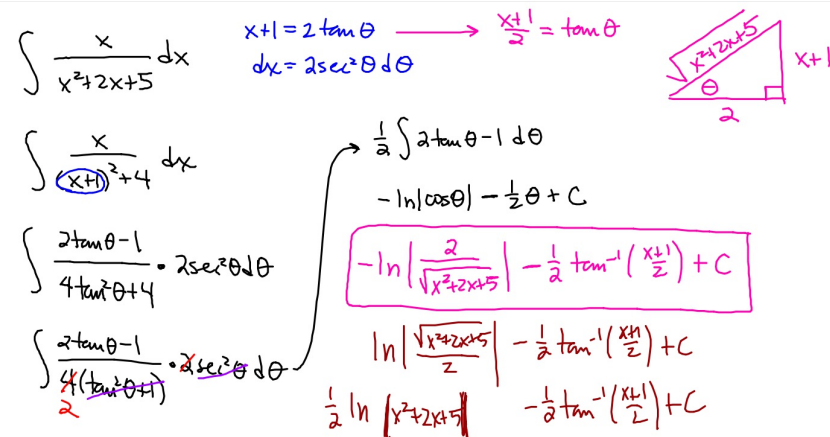 ∫ x/(x²+2x+5) dx
x+1 = 2tanθ → (x+1)/2 = tanθ
dx = 2sec²θ dθ
√(x²+2x+5)
x+1
θ
2
∫ x/((x+1)²+4) dx
∫ (2tanθ-1)/(4tan²θ+4) • 2sec²θdθ
∫ (2tanθ-1)/(4(tan²θ+1)) • 2sec²θ dθ
2
½ ∫ 2tanθ-1 dθ
-ln|cosθ| - ½θ + C
-ln|2/√(x²+2x+5)| - ½ tan⁻¹((x+1)/2) + C
ln|√(x²+2x+5)/2| - ½ tan⁻¹((x+1)/2) + C
½ ln |x²+2x+5| - ½ tan⁻¹((x+1)/2) + C